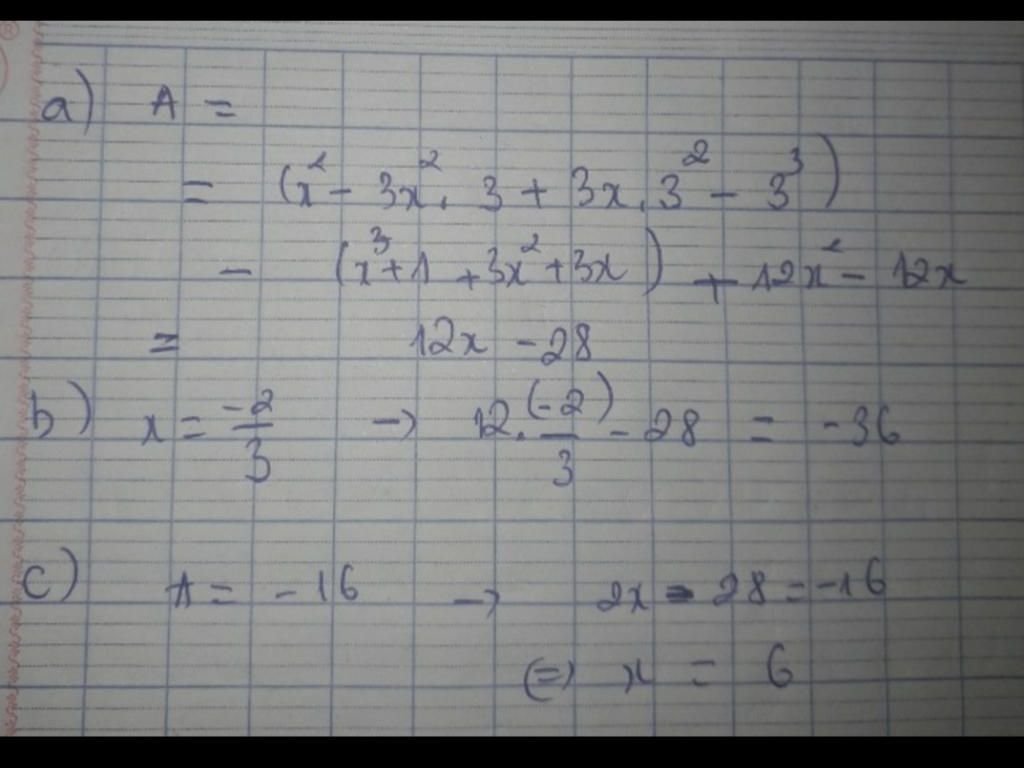 a) A =
= (x² - 3x². 3 + 3x. 3² - 3³)
- (x³ + 1 + 3x² + 3x) + 12x² - 12x
= 12x - 28
b) x = -2/3 → 12. (-2)/3 - 28 = -36
c) A = -16 → 2x - 28 = -16
(=) x = 6